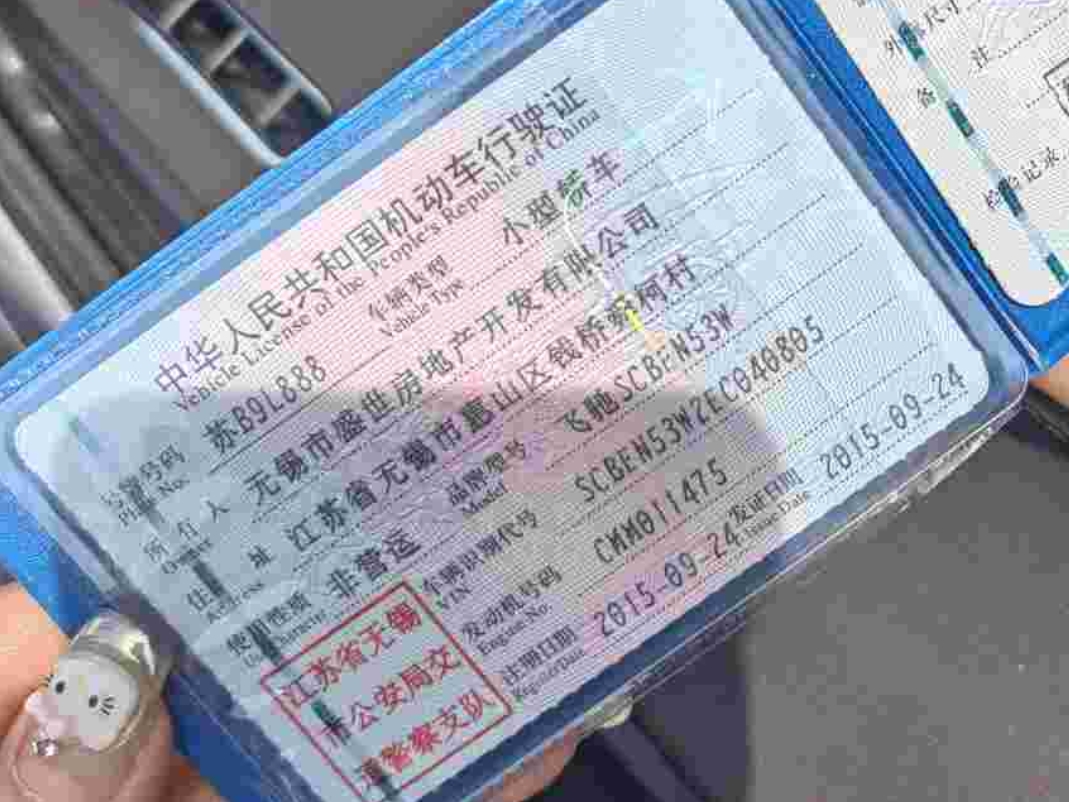 中华人民共和国机动车行驶证
Vehicle License of the People's Republic of China
号牌号码 苏B9L888 车辆类型 小型轿车
Plate No. Vehicle Type
所有人 无锡市盛世房地产开发有限公司
Owner
住 址 江苏省无锡市惠山区钱桥藕柯村
Address
使用性质 非营运 品牌型号 飞驰SCBEN53W
Use Character Model
车辆识别代号 SCBEN53W2EC040805
VIN
发动机号码 CMM011475
Engine No.
注册日期 2015-09-24 发证日期 2015-09-24
Register Date Issue Date
江苏省无锡
市公安局交
通警察支队
外廓尺寸
备 注
检验记录